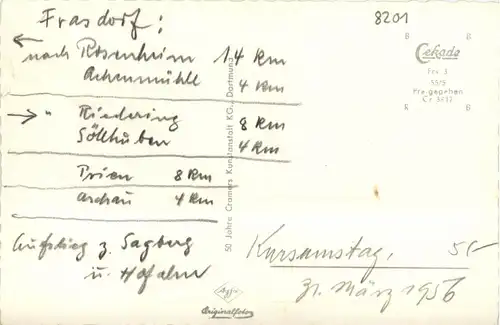 Frasdorf:
← nach Rosenheim 14 km
Achenmühle 4 km
→ " Riedering 8 km
Söllhuben 4 km
Prien 8 km
Aschau 4 km
Aufstieg z. Sagberg
u. Hofalm
8201
Cekade
Frs 3
55/5
Freigegeben
50 Jahre Cramers Kunstanstalt KG., Dortmund
Agfa
Originalfoto
Karsamstag,
31. März 1956